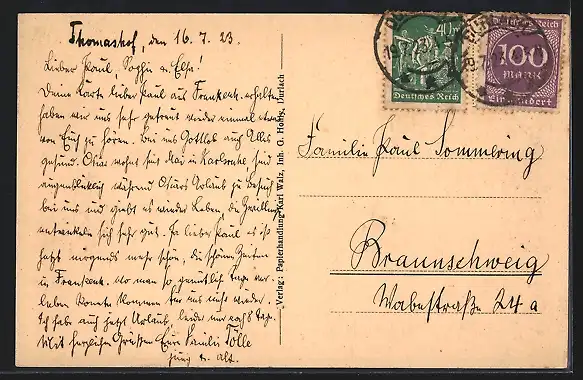 Thomashof, den 16. 7. 23.
Lieber Paul, Sophie u. Else!
Deine Karte lieber Paul aus Frankenh. erhalten
haben wir uns sehr gefreut wieder einmal etwas
von Euch zu hören. Bei uns Gottlob auch Alles
gesund. Oskar wohnt seit Mai in Karlsruhe, sind
augenblicklich während Oskars Urlaub zu Besuch
bei uns und giebt es wieder Leben, die Zwillinge
entwickeln sich sehr gut. Ja lieber Paul es ist
jetzt nirgends mehr schön, die schönen Zeiten
in Frankenh. wo man so gemütlich Tage ver-
leben konnte kommen für uns nicht wieder.
Ich habe auch jetzt Urlaub, leider nur noch 8 Tage.
Mit herzlichen Grüßen Eure Familie Tölle
jung u. alt.
Verlag: Papierhandlung Karl Walz, Inh. G. Hotby, Durlach
40 M
Deutsches Reich
Deutsches Reich
100
MARK
Einhundert
Familie Paul Sommering
Braunschweig
Wabestraße 24 a